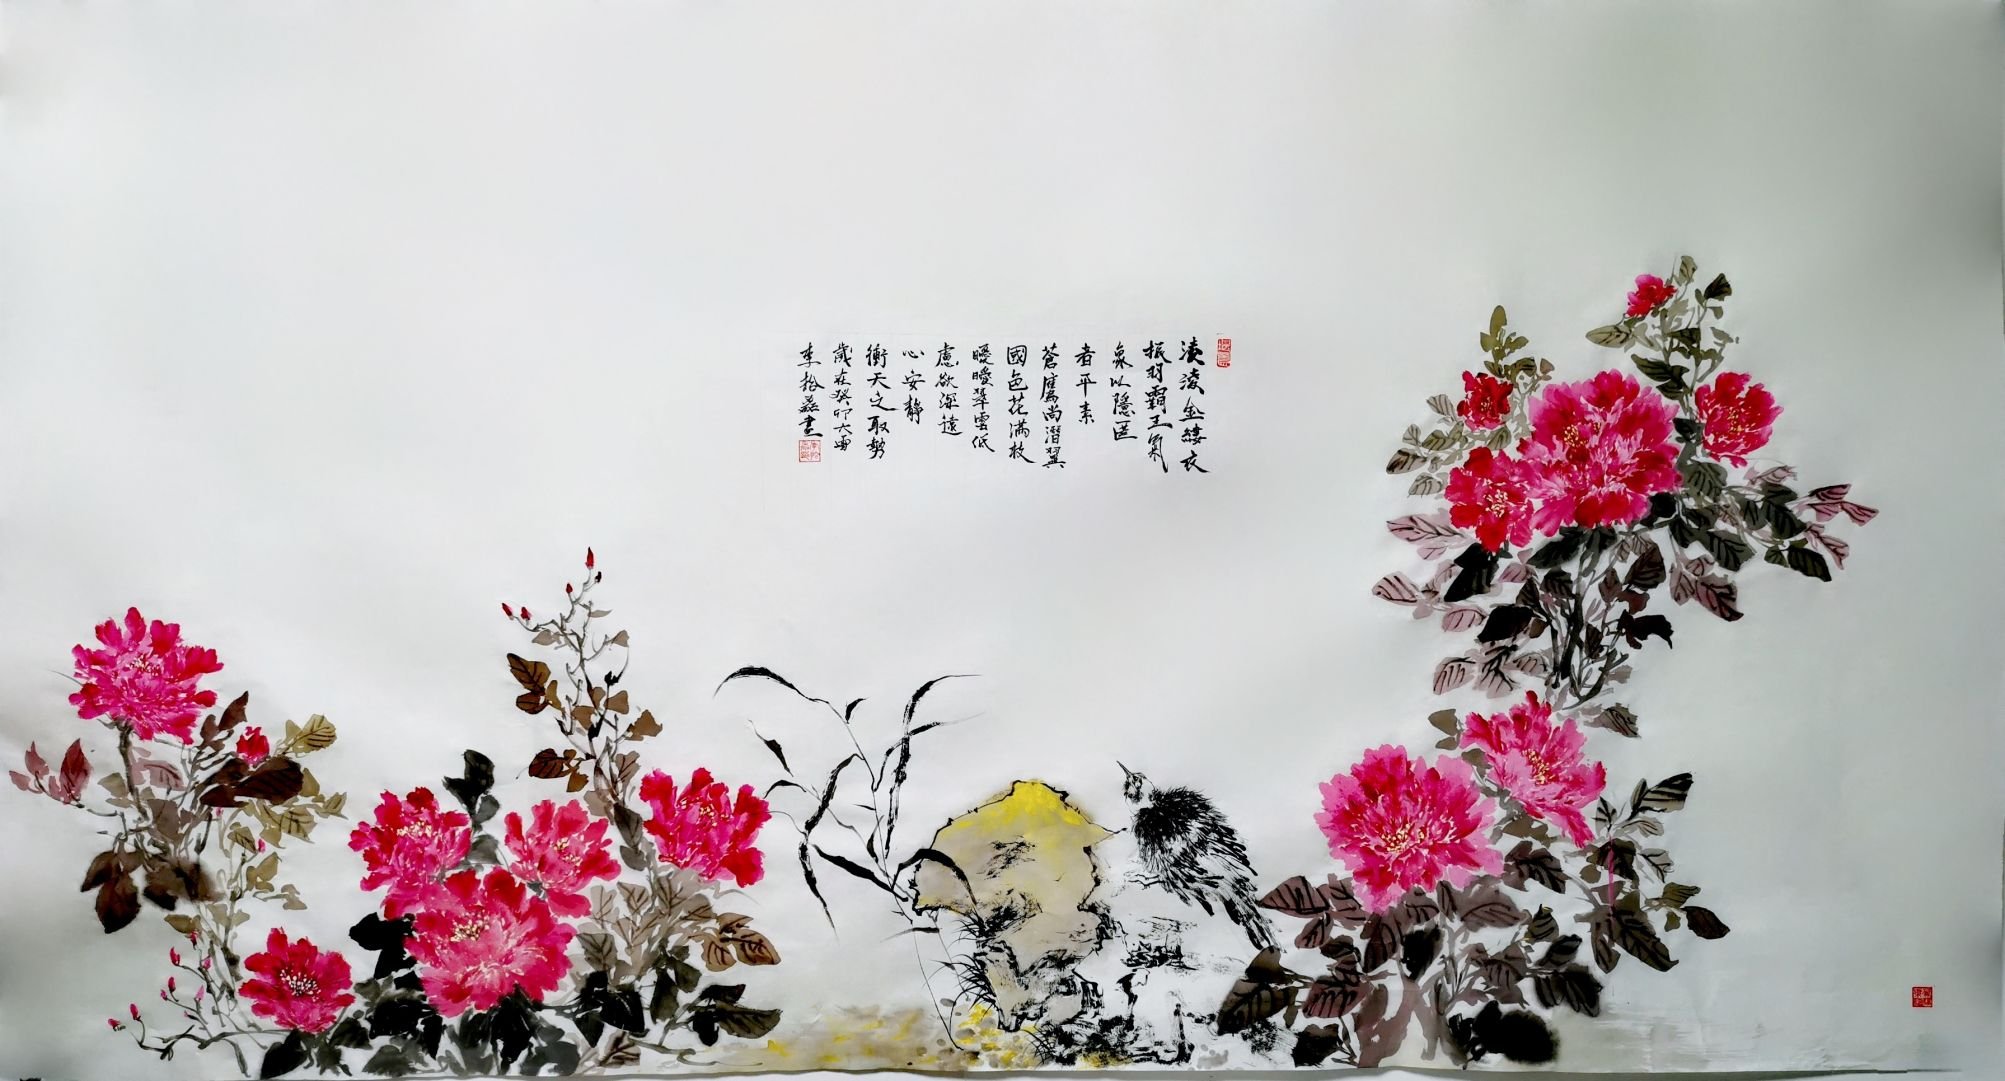 凌金縷衣
振羽霸王氣
象以隱匿
者平素
蒼鷹尚潛翼
國色花滿枝
曖曖翠雲低
慮欲深遠
心安靜
衝天之取勢
歲在癸卯大雪
李
畫